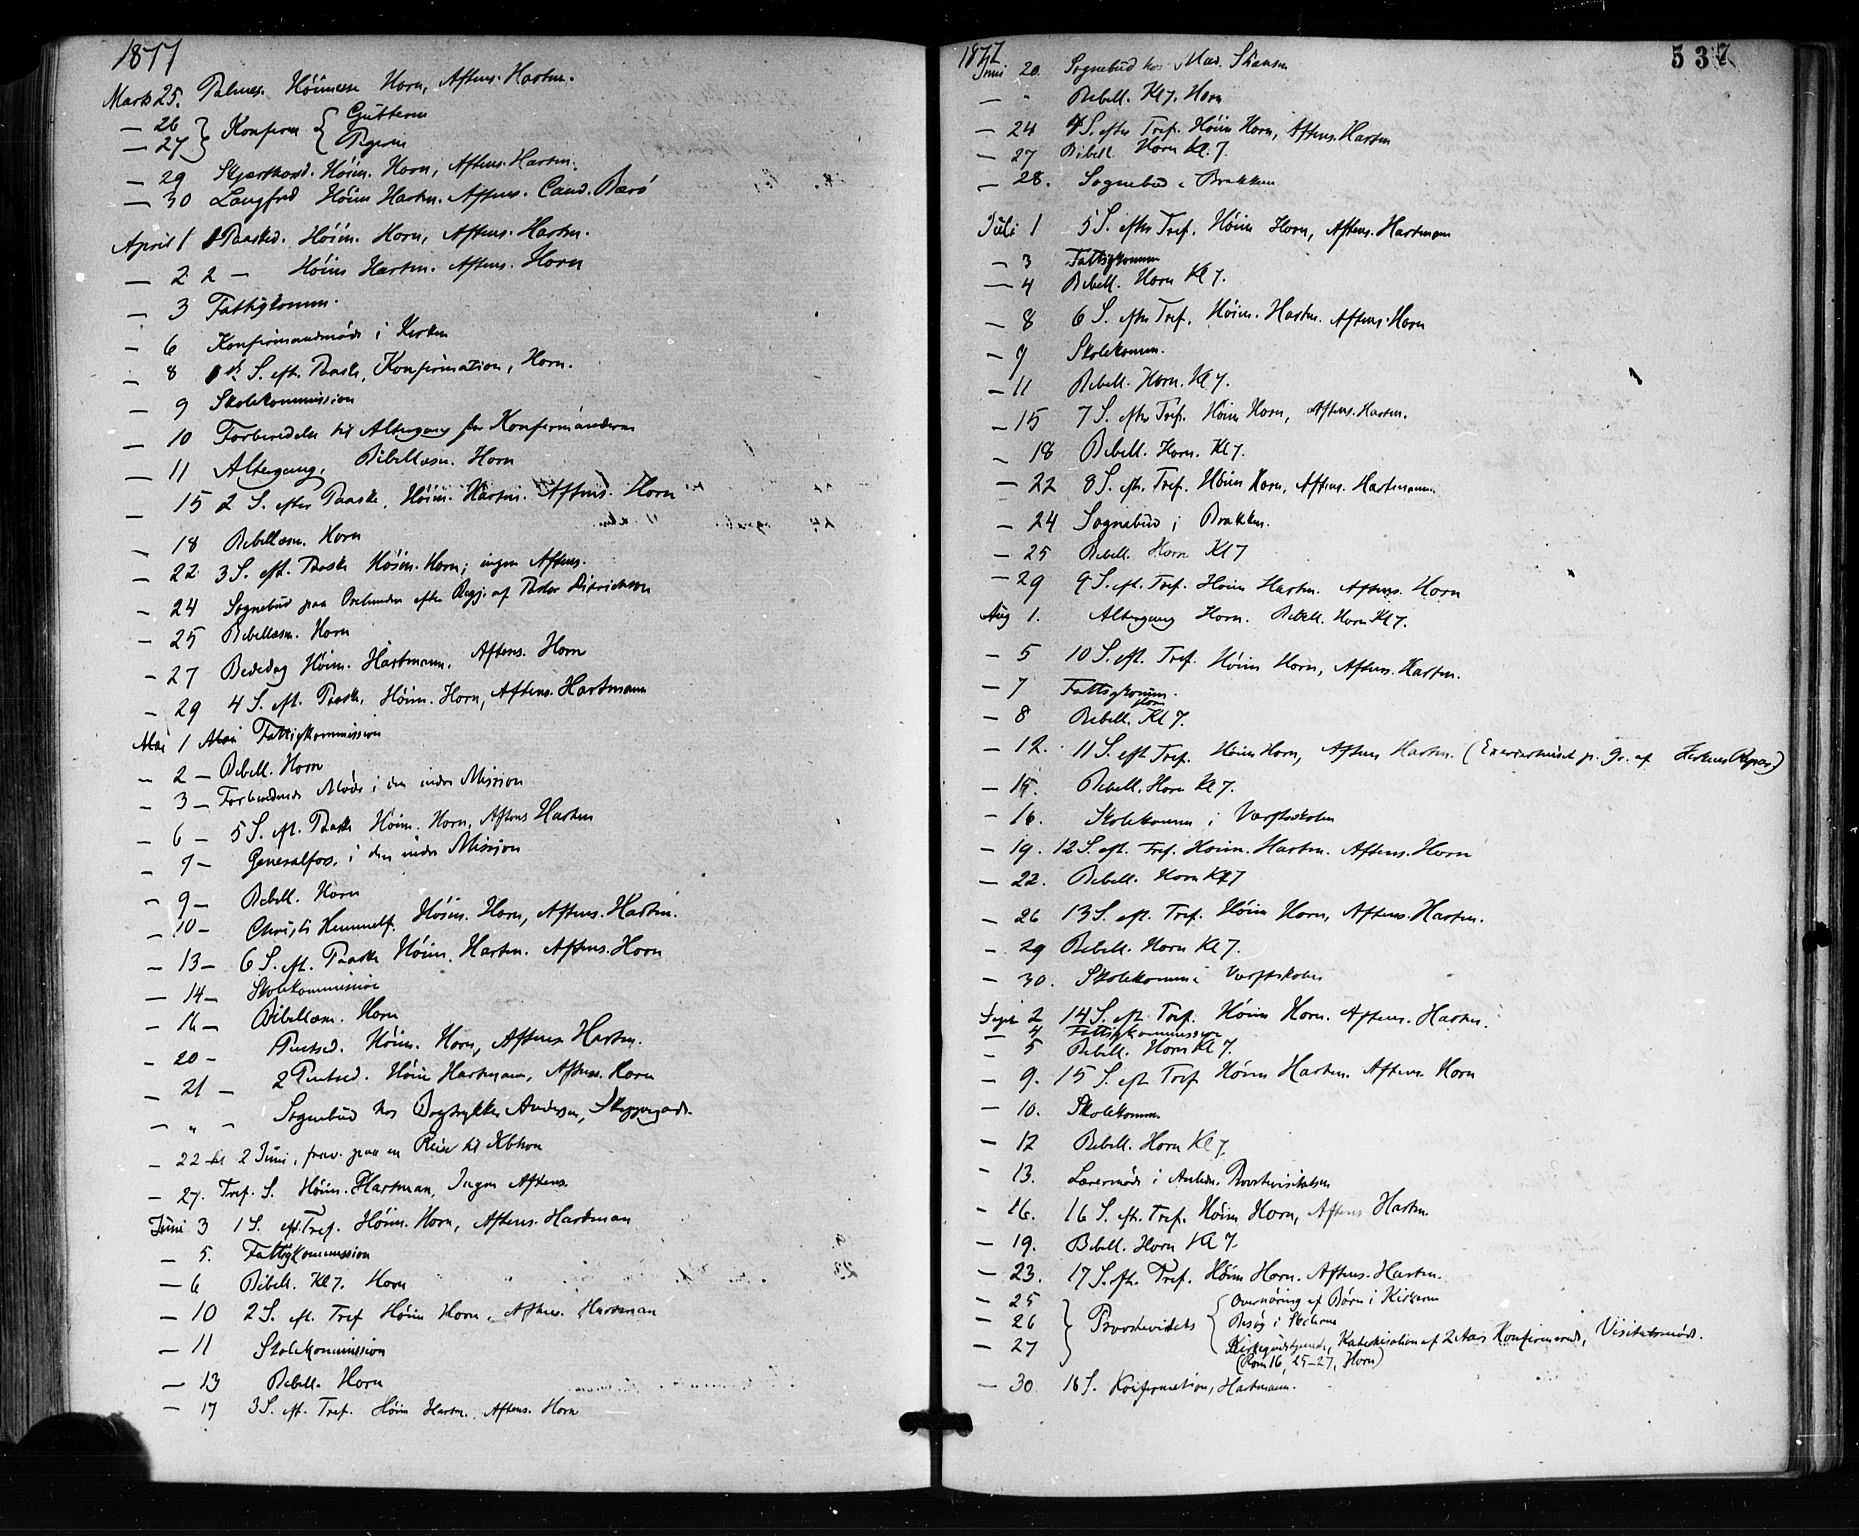 1877
Marts 25. Palmes. Höimesse Horn, Aftens. Hartm.
— 26 } Konfirm { Gutterne
— 27 } Pigerne
— 29 Skjærthorsd. Höim. Horn, Aftens. Hartm.
— 30 Langfred Höim Hartm. Aftens. Cand. Barö
April 1 1 Paasked. Höim. Horn, Aftens. Hartm.
— 2 2 — Höim Hartm. Aftens. Horn
— 3 Fattigkomm.
— 6 Konfirmandmöde i Kirken
— 8 1st S. eft. Paaske, Konfirmation, Horn.
— 9 Skolekommission
— 10 Forberedelse til Altergang for Konfirmanderne
— 11 Altergang. Bibellæsn. Horn
— 15 2 S. efter Paaske, Höim. Hartm. Aftens. Horn
— 18 Bibellæsn. Horn
— 22 3 S. eft. Paaske Höim. Horn; ingen Aftens.
— 24 Sognebud paa efter Begj. af Pastor Ditrichson
— 25 Bibellæsn. Horn
— 27 Bededag Höim. Hartmann. Aftens. Horn
— 29 4 S. eft. Paaske, Höim. Horn, Aftens. Hartmann
Mai 1 Mai Fattigkommission
— 2 — Bibell. Horn
— 3 — Forberedende Möde i den indre Mission
— 6 — 5 S. eft. Paaske Höim. Horn, Aftens Hartm
— 7 — Generalfors. i den indre Mission
— 9 — Bibell. Horn
— 10 — Christi Himmelf. Höim. Horn, Aftens. Hartm.
— 13 — 6 S. eft. Paaske Höim. Hartm. Aftens. Horn
— 14 — Skolekommission
— 16 — Bibellæsn. Horn
— 20 — Pintsed. Höim. Horn, Aftens. Hartm.
— 21 — 2 Pintsed. Höim Hartmann, Aftens. Horn
— " — Sognebud hos Bogtrykker Andersen, Skippergade.
— 22 til 2 Juni, frav. paa en Reise til Kbhvn
— 27. Tref. S. Höim. Hartman, Ingen Aftens.
Juni 3 1 S. eft. Tref. Höim. Horn, Aftens. Hartman
— 5. Fattigkommission
— 6 Bibell. Kl 7. Horn
— 10 2 S. eft. Tref Höim Horn, Aftens. Hartman
— 11 Skolekommission
— 13 Bibell. Horn
— 17 3 S. eft. Tref. Höim Hartm. Aftens. Horn
1877 537
Juni 20. Sognebud hos Mad. Skansen
— " Bibell. Kl 7. Horn
— 24 4 S. efter Tref. Höim Horn, Aftens. Hartm
— 27 Bibell Horn Kl. 7.
— 28. Sognebud i Brakken
Juli 1 5 S. efter Tref. Höim Horn, Aftens. Hartmann
— 3 Fattigkomm
— 4 Bibell. Horn Kl 7.
— 8 6 S. efter Tref. Höim. Hartm. Aftens. Horn
— 9 Skolekomm.
— 11 Bibell. Horn. Kl 7.
— 15 7 S. efter Tref. Höim Horn, Aftens. Hartm.
— 18 Bibell. Horn. Kl 7.
— 22 8 S. eft. Tref. Höim Horn, Aftens. Hartmann.
— 24 Sognebud i Brakken.
— 25 Bibell. Horn Kl 7
— 29 9 S. eft. Tref. Höim Hartm. Aftens. Horn
Aug 1. Altergang Horn. Bibell. Horn Kl 7.
— 5 10 S. eft. Tref. Höim Horn, Aftens. Hartm.
— 7 Fattigkomm.
— 8 Bibell. Horn Kl 7.
— 12. 11 S. eft Tref. Höim Horn, Aftens Hartm. (Exercerhuset p. Gr. af Kirkens Repar)
— 15. Bibell. Horn Kl 7.
— 16. Skolekomm i Værftsskolen
— 19. 12 S. eft. Tref. Höim. Hartm. Aftens. Horn
— 22. Bibell. Horn Kl 7
— 26 13 S. eft. Tref. Höim Horn, Aftens. Hartm.
— 29 Bibell. Horn Kl 7.
— 30. Skolekomm i Værftskolen
Sept 2 14 S. eft. Tref. Höim Horn. Aftens. Hartm.
— 4 Fattigkommission
— 5 Bibell. Horn Kl 7.
— 9. 15 S. eft. Tref Höim Hartm. Aftens Horn
— 10. Skolekomm.
— 12 Bibell. Horn Kl 7.
— 13. Lærermöde i Anledn. Provstevisitatsen
— 16. 16 S. eft. Tref. Höim Horn, Aftens Hartm.
— 19. Bibell. Horn Kl 7.
— 23. 17 S. eft. Tref. Höim Horn. Aftens. Hartm.
— 25 } { Overhöring af Börn i Kirkerne
— 26 } Provstevisitats { Besög i Skolerne
— 27 } Kirkegudstjeneste, Katechisation af 2 Aars Konfirmerede, Visitatsmöde.
(Rom 16, 25-27, Horn)
— 30 18 S. Konfirmation, Hartmann.